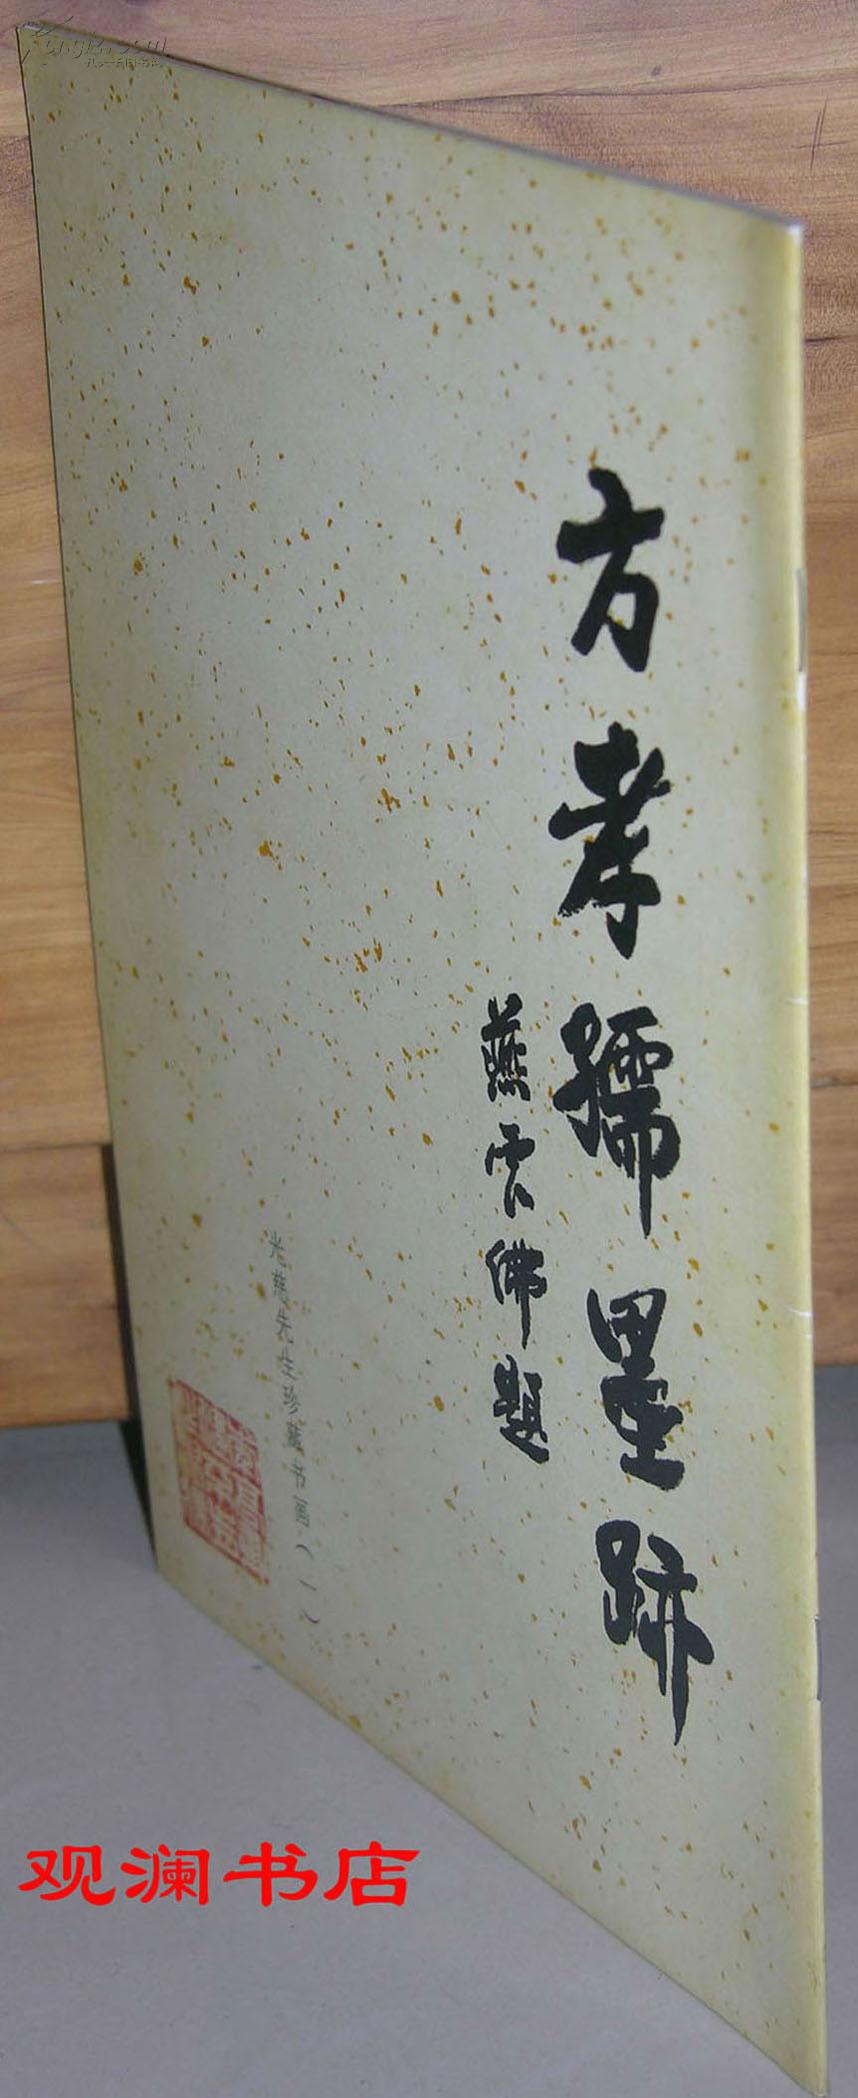 方孝孺墨跡
燕雲佛題
光慈先生珍藏书画（一）
观澜书店